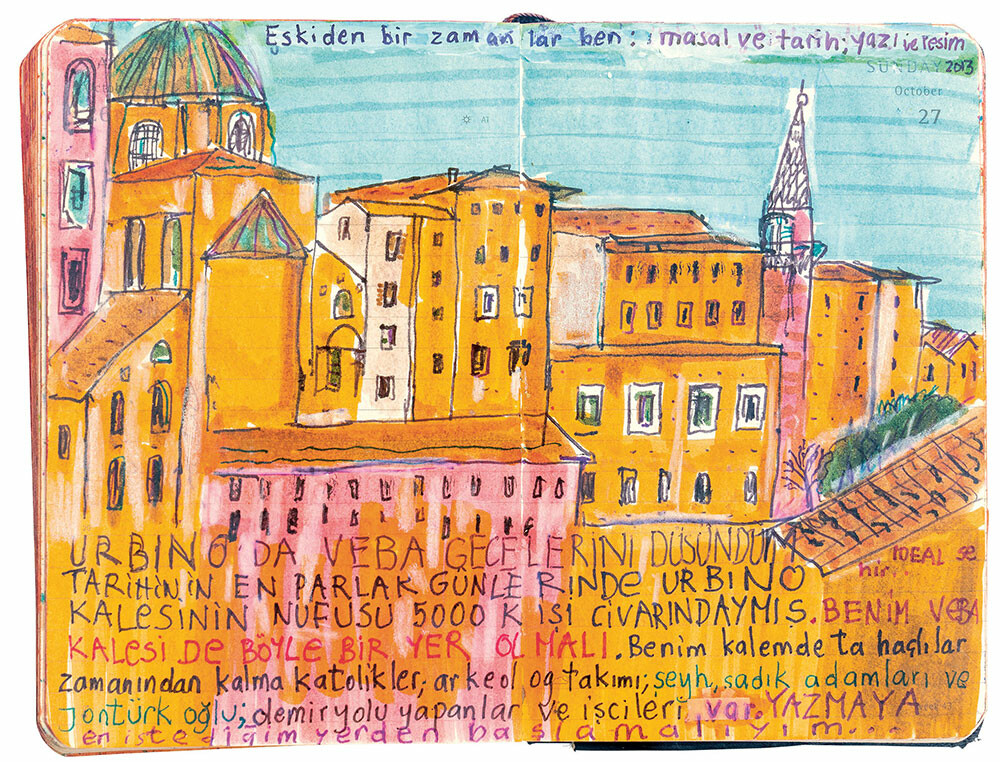 Eskiden bir zamanlar ben: masal ve tarih; yazı ve resim
SUNDAY 2013
October
27
URBINO'DA VEBA GECELERİNİ DÜŞÜNDÜM
TARİHİNİN EN PARLAK GÜNLERİNDE URBINO
KALESİNİN NUFUSU 5000 KİŞİ CİVARINDAYMIŞ. BENIM VEBA
KALESİ DE BÖYLE BİR YER OLMALI. Benim kalemde ta haçlılar
zamanından kalma katolikler; arkeolog takımı; şeyh, sadık adamları ve
jontürk oğlu; demiryolu yapanlar ve işçileri var. YAZMAYA
en istediğim yerden başlamalıyım...
IDEAL şe
hir..